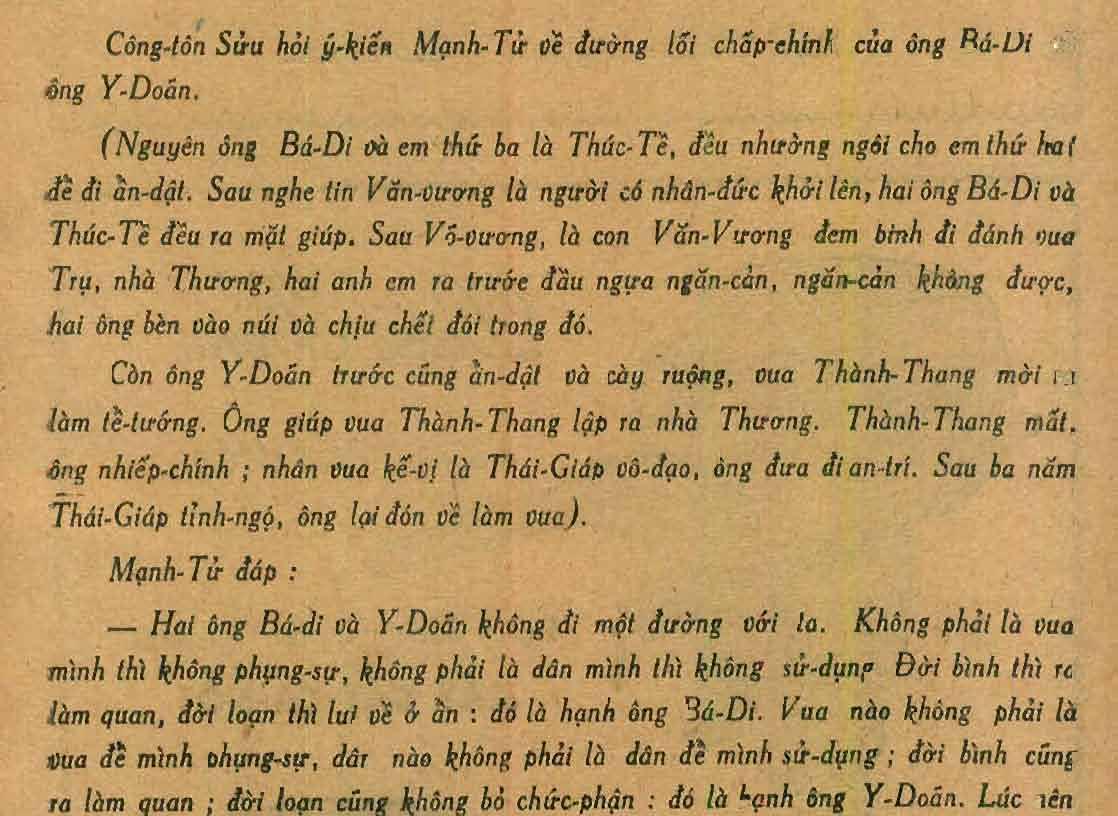 Công-tôn Sửu hỏi ý-kiến Mạnh-Tử về đường lối chấp-chính của ông Bá-Di
ông Y-Doãn.
(Nguyên ông Bá-Di và em thứ ba là Thúc-Tề, đều nhường ngôi cho em thứ hai
để đi ẩn-dật. Sau nghe tin Văn-vương là người có nhân-đức khởi lên, hai ông Bá-Di và
Thúc-Tề đều ra mặt giúp. Sau Võ-vương, là con Văn-Vương đem binh đi đánh vua
Trụ, nhà Thương, hai anh em ra trước đầu ngựa ngăn-cản, ngăn-cản không được,
hai ông bèn vào núi và chịu chết đói trong đó.
Còn ông Y-Doãn trước cũng ẩn-dật và cày ruộng, vua Thành-Thang mời ra
làm tể-tướng. Ông giúp vua Thành-Thang lập ra nhà Thương. Thành-Thang mất,
ông nhiếp-chính ; nhân vua kế-vị là Thái-Giáp vô-đạo, ông đưa đi an-trí. Sau ba năm
Thái-Giáp tỉnh-ngộ, ông lại đón về làm vua).
Mạnh-Tử đáp :
— Hai ông Bá-di và Y-Doãn không đi một đường với ta. Không phải là vua
mình thì không phụng-sự, không phải là dân mình thì không sử-dụng Đời bình thì ra
làm quan, đời loạn thì lui về ở ẩn : đó là hạnh ông Bá-Di. Vua nào không phải là
vua để mình phụng-sự, dân nào không phải là dân để mình sử-dụng ; đời bình cũng
ra làm quan ; đời loạn cũng không bỏ chức-phận : đó là hạnh ông Y-Doãn. Lúc nên